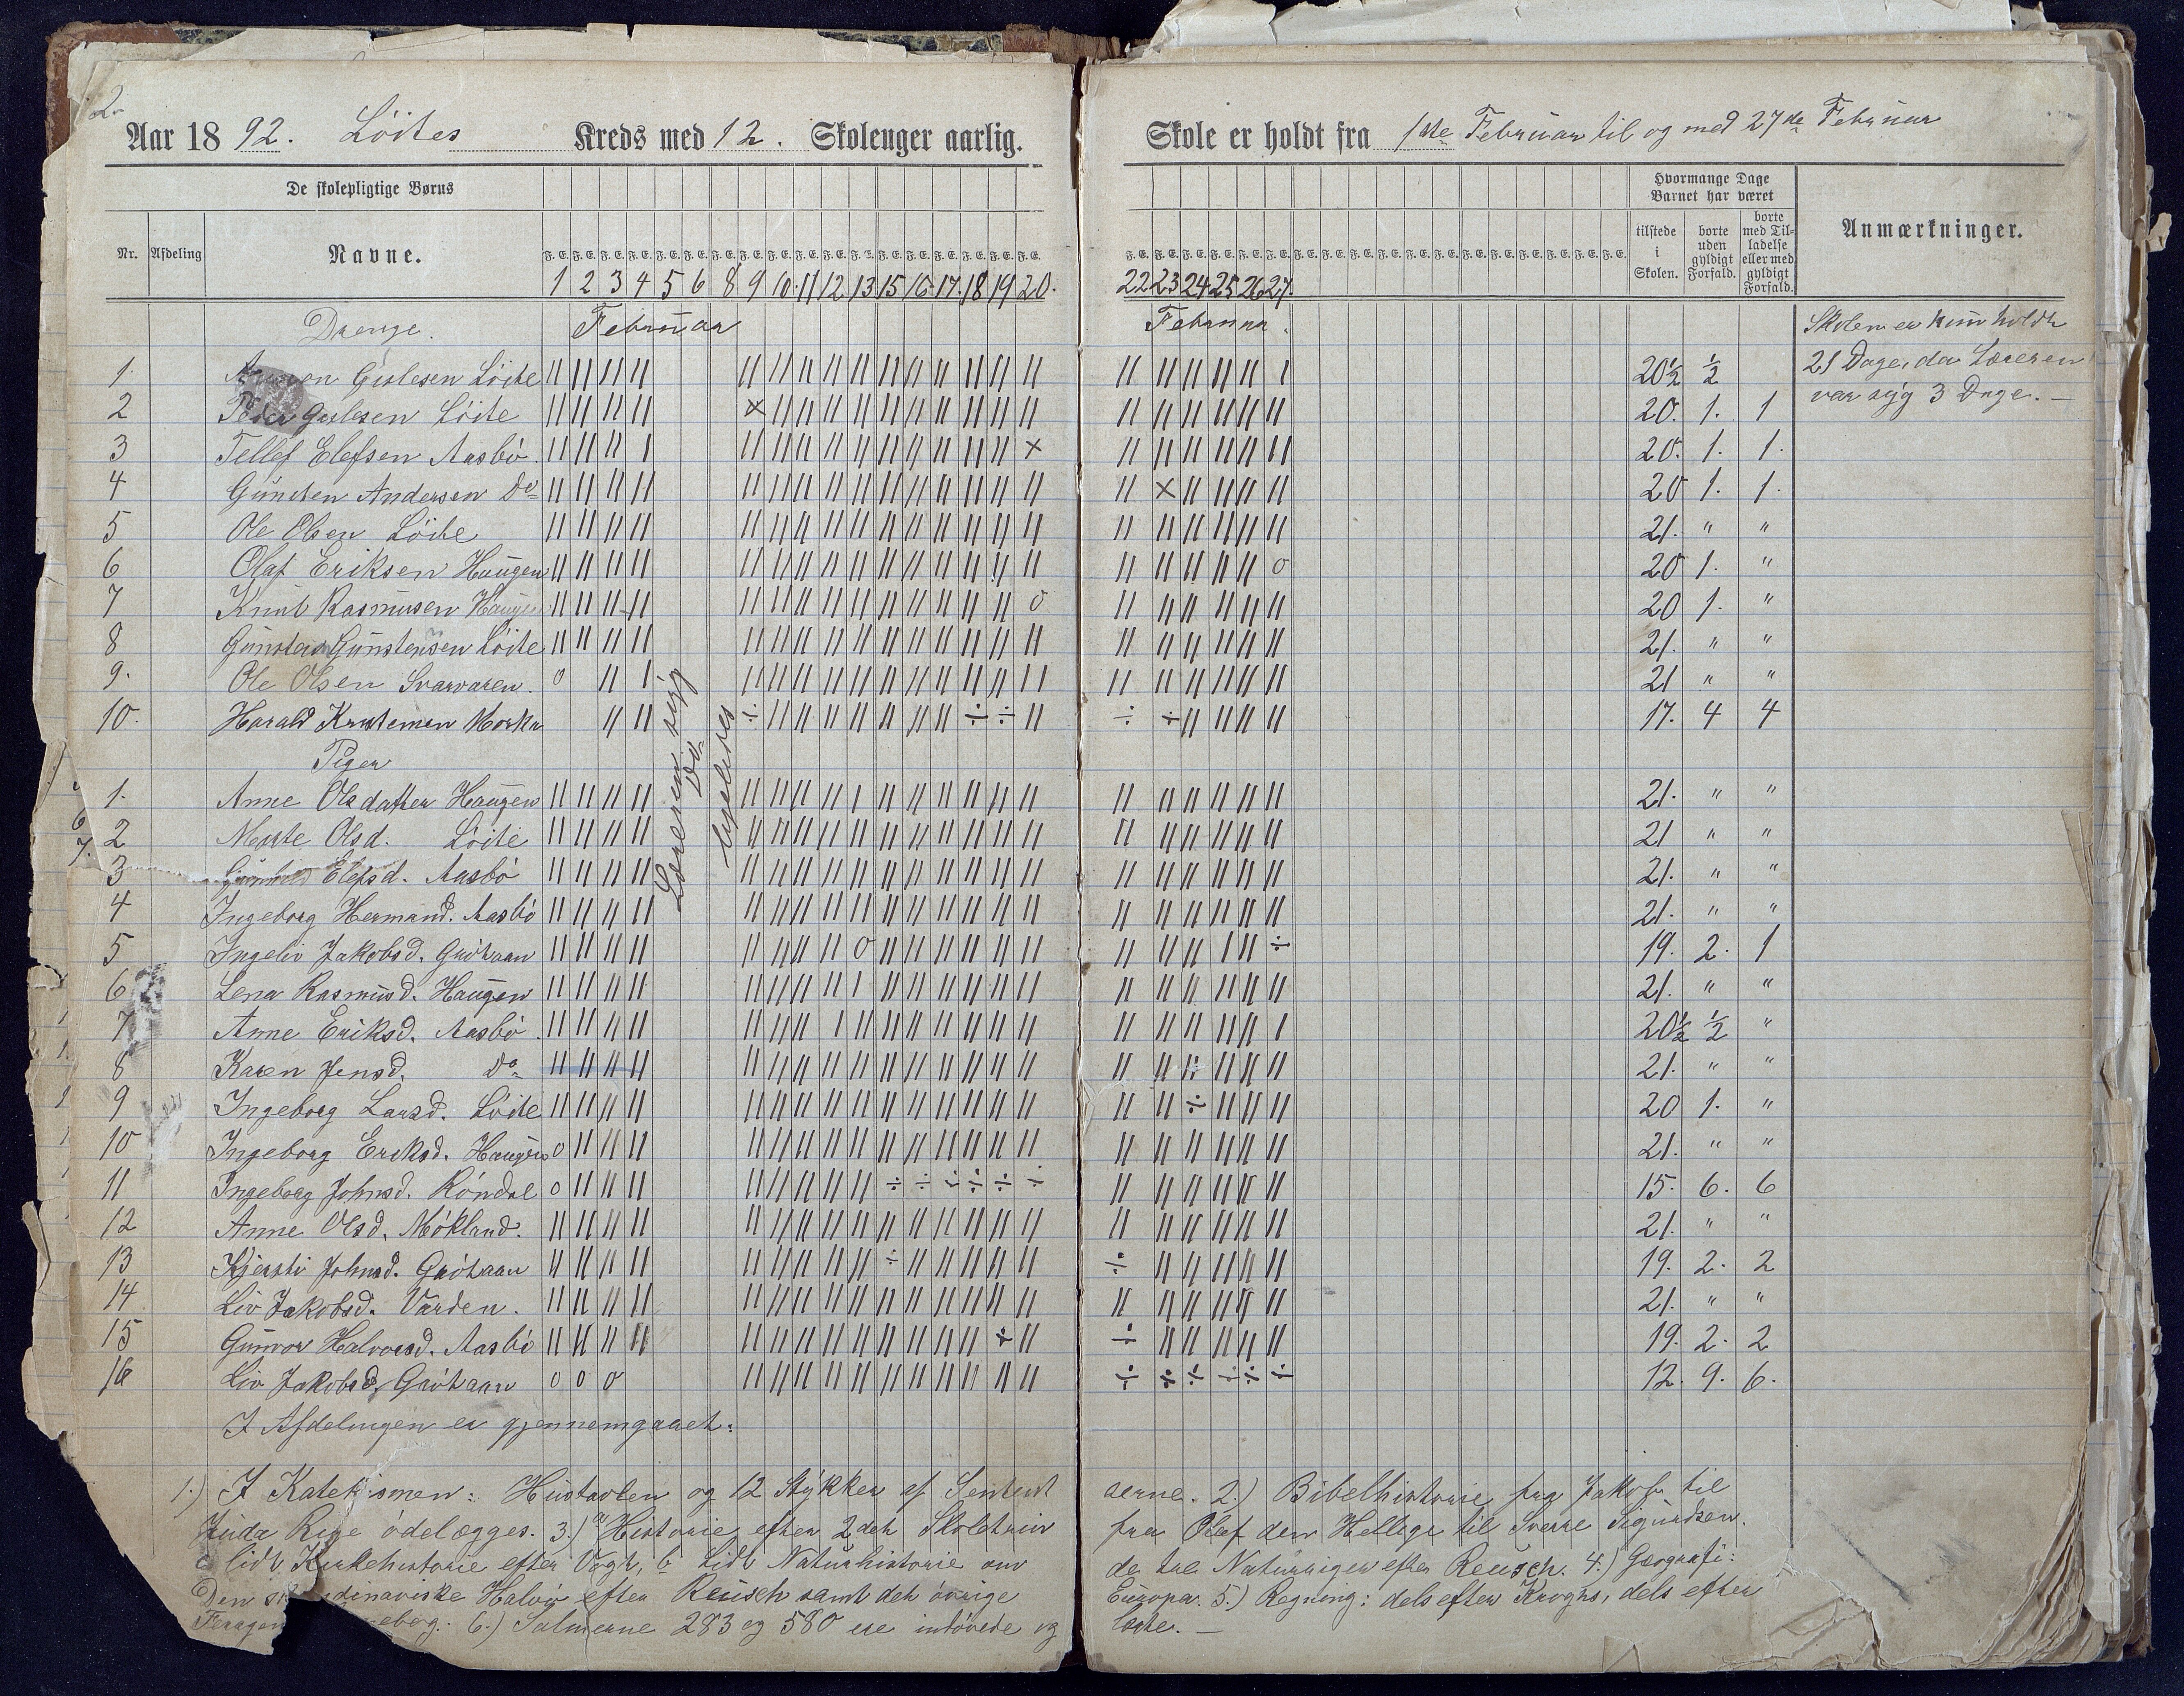 2.
Aar 1892. Löites Kreds med 12. Skolenger aarlig. Skole er holdt fra 1ste Februar til og med 27de Februar
De skolepligtige Børns
Hvormange Dage Barnet har været
Nr. Afdeling Navne. F. E. F. E. F. E. F. E. F. E. F. E. F. E. F. E. F. E. F. E. F. E. F. E. F. E. F. E. F. E. F. E. F. E. F. E.
tilstede i Skolen. borte uden gyldigt Forfald. borte med Tilladelse eller med gyldigt Forfald. Anmærkninger.
1 2 3 4 5 6 8 9 10. 11 12 13 15 16. 17. 18 19 20. 22 23 24 25 26 27.
Drenge. Februar Februar. Skolen er kun holdt
1. Gislesen Löite 20½ ½ 21 Dage, da Læreren
2 Peder Gislesen Löite 20. 1. 1 var syg 3 Dage. —
3 Tellef Elefsen Aasbö. 20. 1. 1.
4 Gunsten Andersen Do 20 1. 1.
5 Ole Olsen Löite 21. " "
6 Olaf Eriksen Haugen 20 1. "
7 Knut Rasmusen Haugen 20 1. "
8 Gunsten Gunstensen Löite 21. " "
9. Ole Olsen Svarvaren. 21 " "
10. Harald 17. 4 4
Læreren syg
Do
ligeledes
Piger
1. Anne Olsdatter Haugen 21. " "
2 Marte Olsd. Löite 21 " "
3 Gunhild Elefsd. Aasbö 21. " "
4 Ingeborg Hermand. Aasbö 21. " "
5 Ingeliv Jakobsd. Grötaan 19. 2. 1
6 Lena Rasmusd. Haugen 21. " "
7 Anne Eriksd. Aasbö. 20½ ½ "
8 Karen Jensd. Do 21. " "
9 Ingeborg Larsd. Löite 20 1. "
10 Ingeborg Eriksd. Haugen 21. " "
11 Ingeborg Johnsd. Röndal 15. 6. 6
12 Anne Olsd. Mökland. 21. " "
13 Kjersti Johnsd. Grötaan 19. 2. 2
14 Liv Jakobsd. Varden. 21. " "
15 Gunvor Halvorsd. Aasbö 19. 2. 2
16 Liv Jakobsd. Grötaan 12. 9. 6.
I Afdelingen er gjennemgaaet:
1.) I Katekismen: Hustavlen og 12 Stykker af Sentent serne. 2.) Bibelhistorie fra Jakob til
Juda Rige ödelægges. 3.) a Historie efter 2det Skoletrin fra Olaf den Hellige til Sverre Sigurdsen.
lidt Kirkehistorie efter Vogt, b Lidt Naturhistorie om de tre Naturriger efter Reusch. 4.) Geografi:
Den Halvö efter Reusch samt det övrige Europa. 5.) Regning: dels efter Kroghs, dels efter
6.) Salmerne 283 og 580 ere indövede og